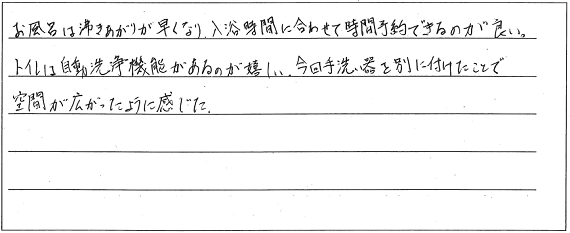 お風呂は沸きあがりが早くなり、入浴時間に合わせて時間予約できるのが良い。
トイレは自動洗浄機能があるのが嬉しい、今回手洗い器を別に付けたことで
空間が広がったように感じた。